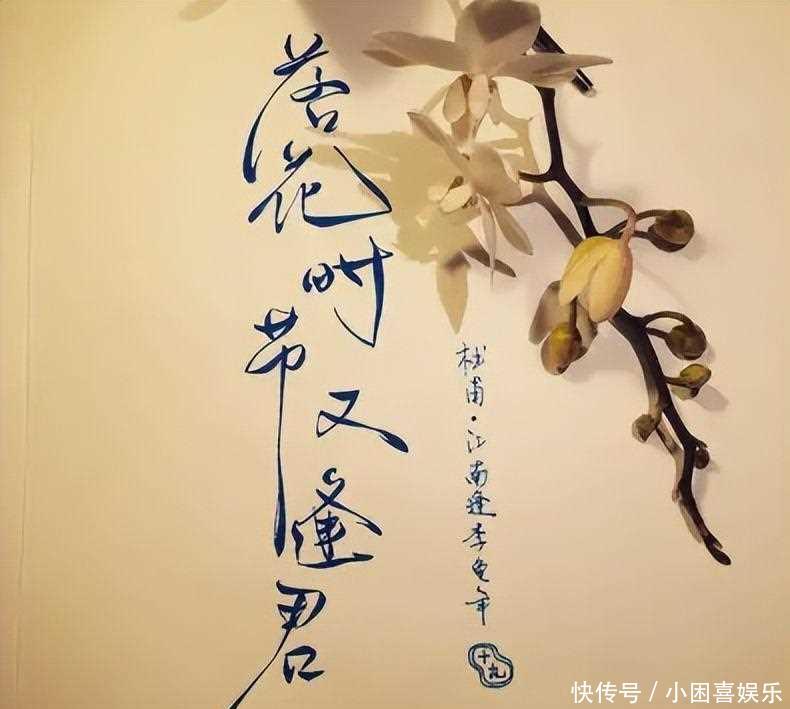 落花时节又逢君
杜甫·江南逢李龟年
十九
快传号 / 小困喜娱乐